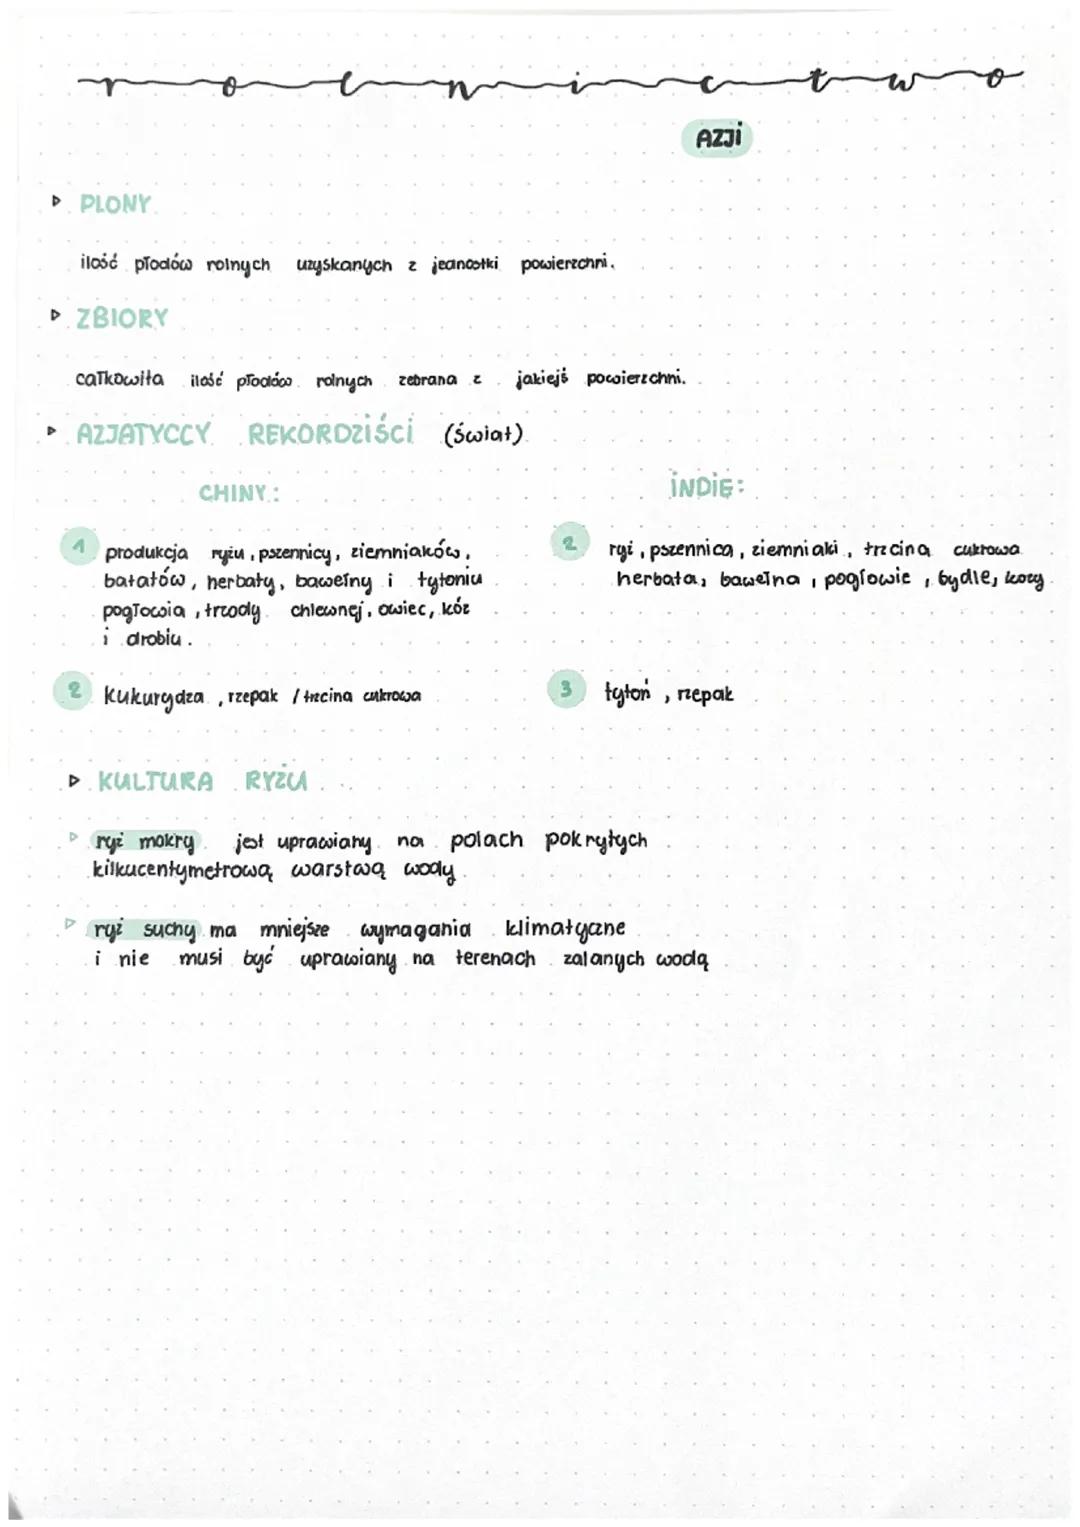 rolnictwo
AZJI
PLONY
ilość płodów rolnych uzyskanych z jednostki powierzchni.
ZBIORY
całkowita ilość płodów rolnych zebrana z jakiejś powierzchni.
AZJATYCCY REKORDZIŚCI (świat)
CHINY:
1 produkcja ryżu, pszennicy, ziemniaków,
batatów, herbaty, bawełny i tytoniu
pogłowia, trzody chlewnej, owiec, kóz
i drobiu.
2 kukurydza, rzepak / trzcina cukrowa
INDIE:
2 ryż, pszennica, ziemniaki, trzcina cukrowa
herbata, bawełna, pogłowie, bydle, kozy
3 tytoń, rzepak
KULTURA RYŻU
ryż mokry jest uprawiany na polach pokrytych
kilkucentymetrową warstwą wody
ryż suchy ma mniejsze wymagania klimatyczne
i nie musi być uprawiany na terenach zalanych wodą